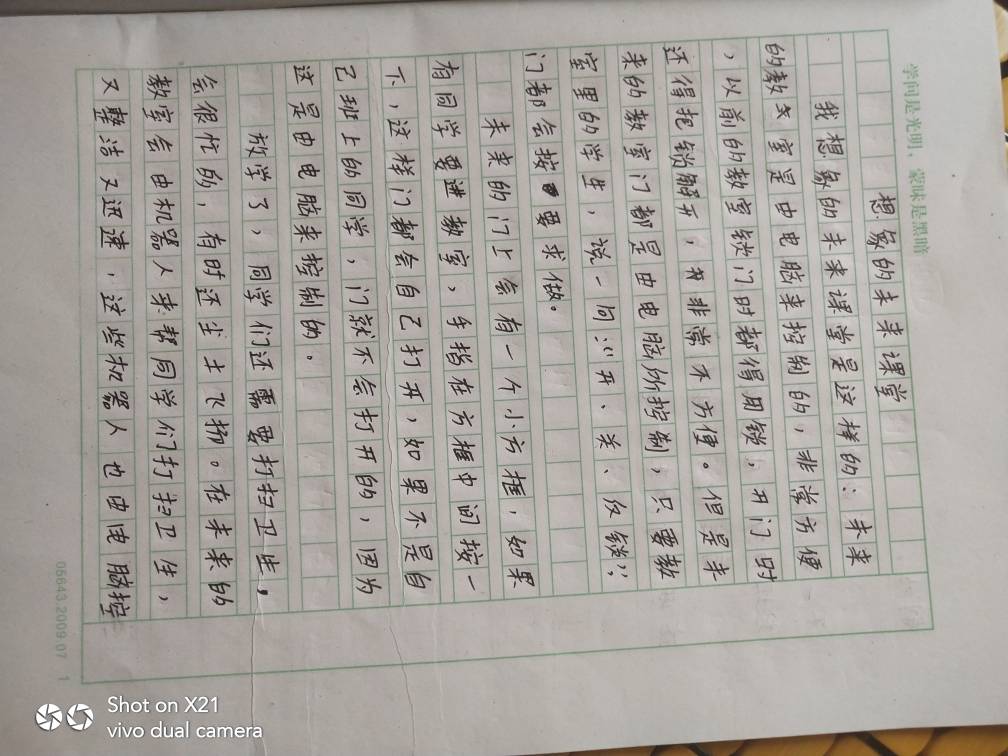 学问是光明，蒙昧是黑暗
想象的未来课堂
我想象的未来课堂是这样的：未来
的教室是由电脑来控制的，非常方便
，以前的教室锁门时都得用锁，开门时
还得把锁解开，非常不方便。但是未
来的教室门都是由电脑所控制，只要教
室里的学生，说一句：“开、关、反锁”，
门都会按要求做。
未来的门上会有一个小方框，如果
有同学要进教室，手指在方框中间按一
下，这样门都会自己打开，如果不是自
己班上的同学，门就不会打开的，因为
这是由电脑来控制的。
放学了，同学们还需要打扫卫生，
会很忙的，有时还尘土飞扬。在未来的
教室会由机器人来帮同学们打扫卫生，
又整洁又迅速，这些机器人也由电脑控
05643.2009.07 1
Shot on X21
vivo dual camera